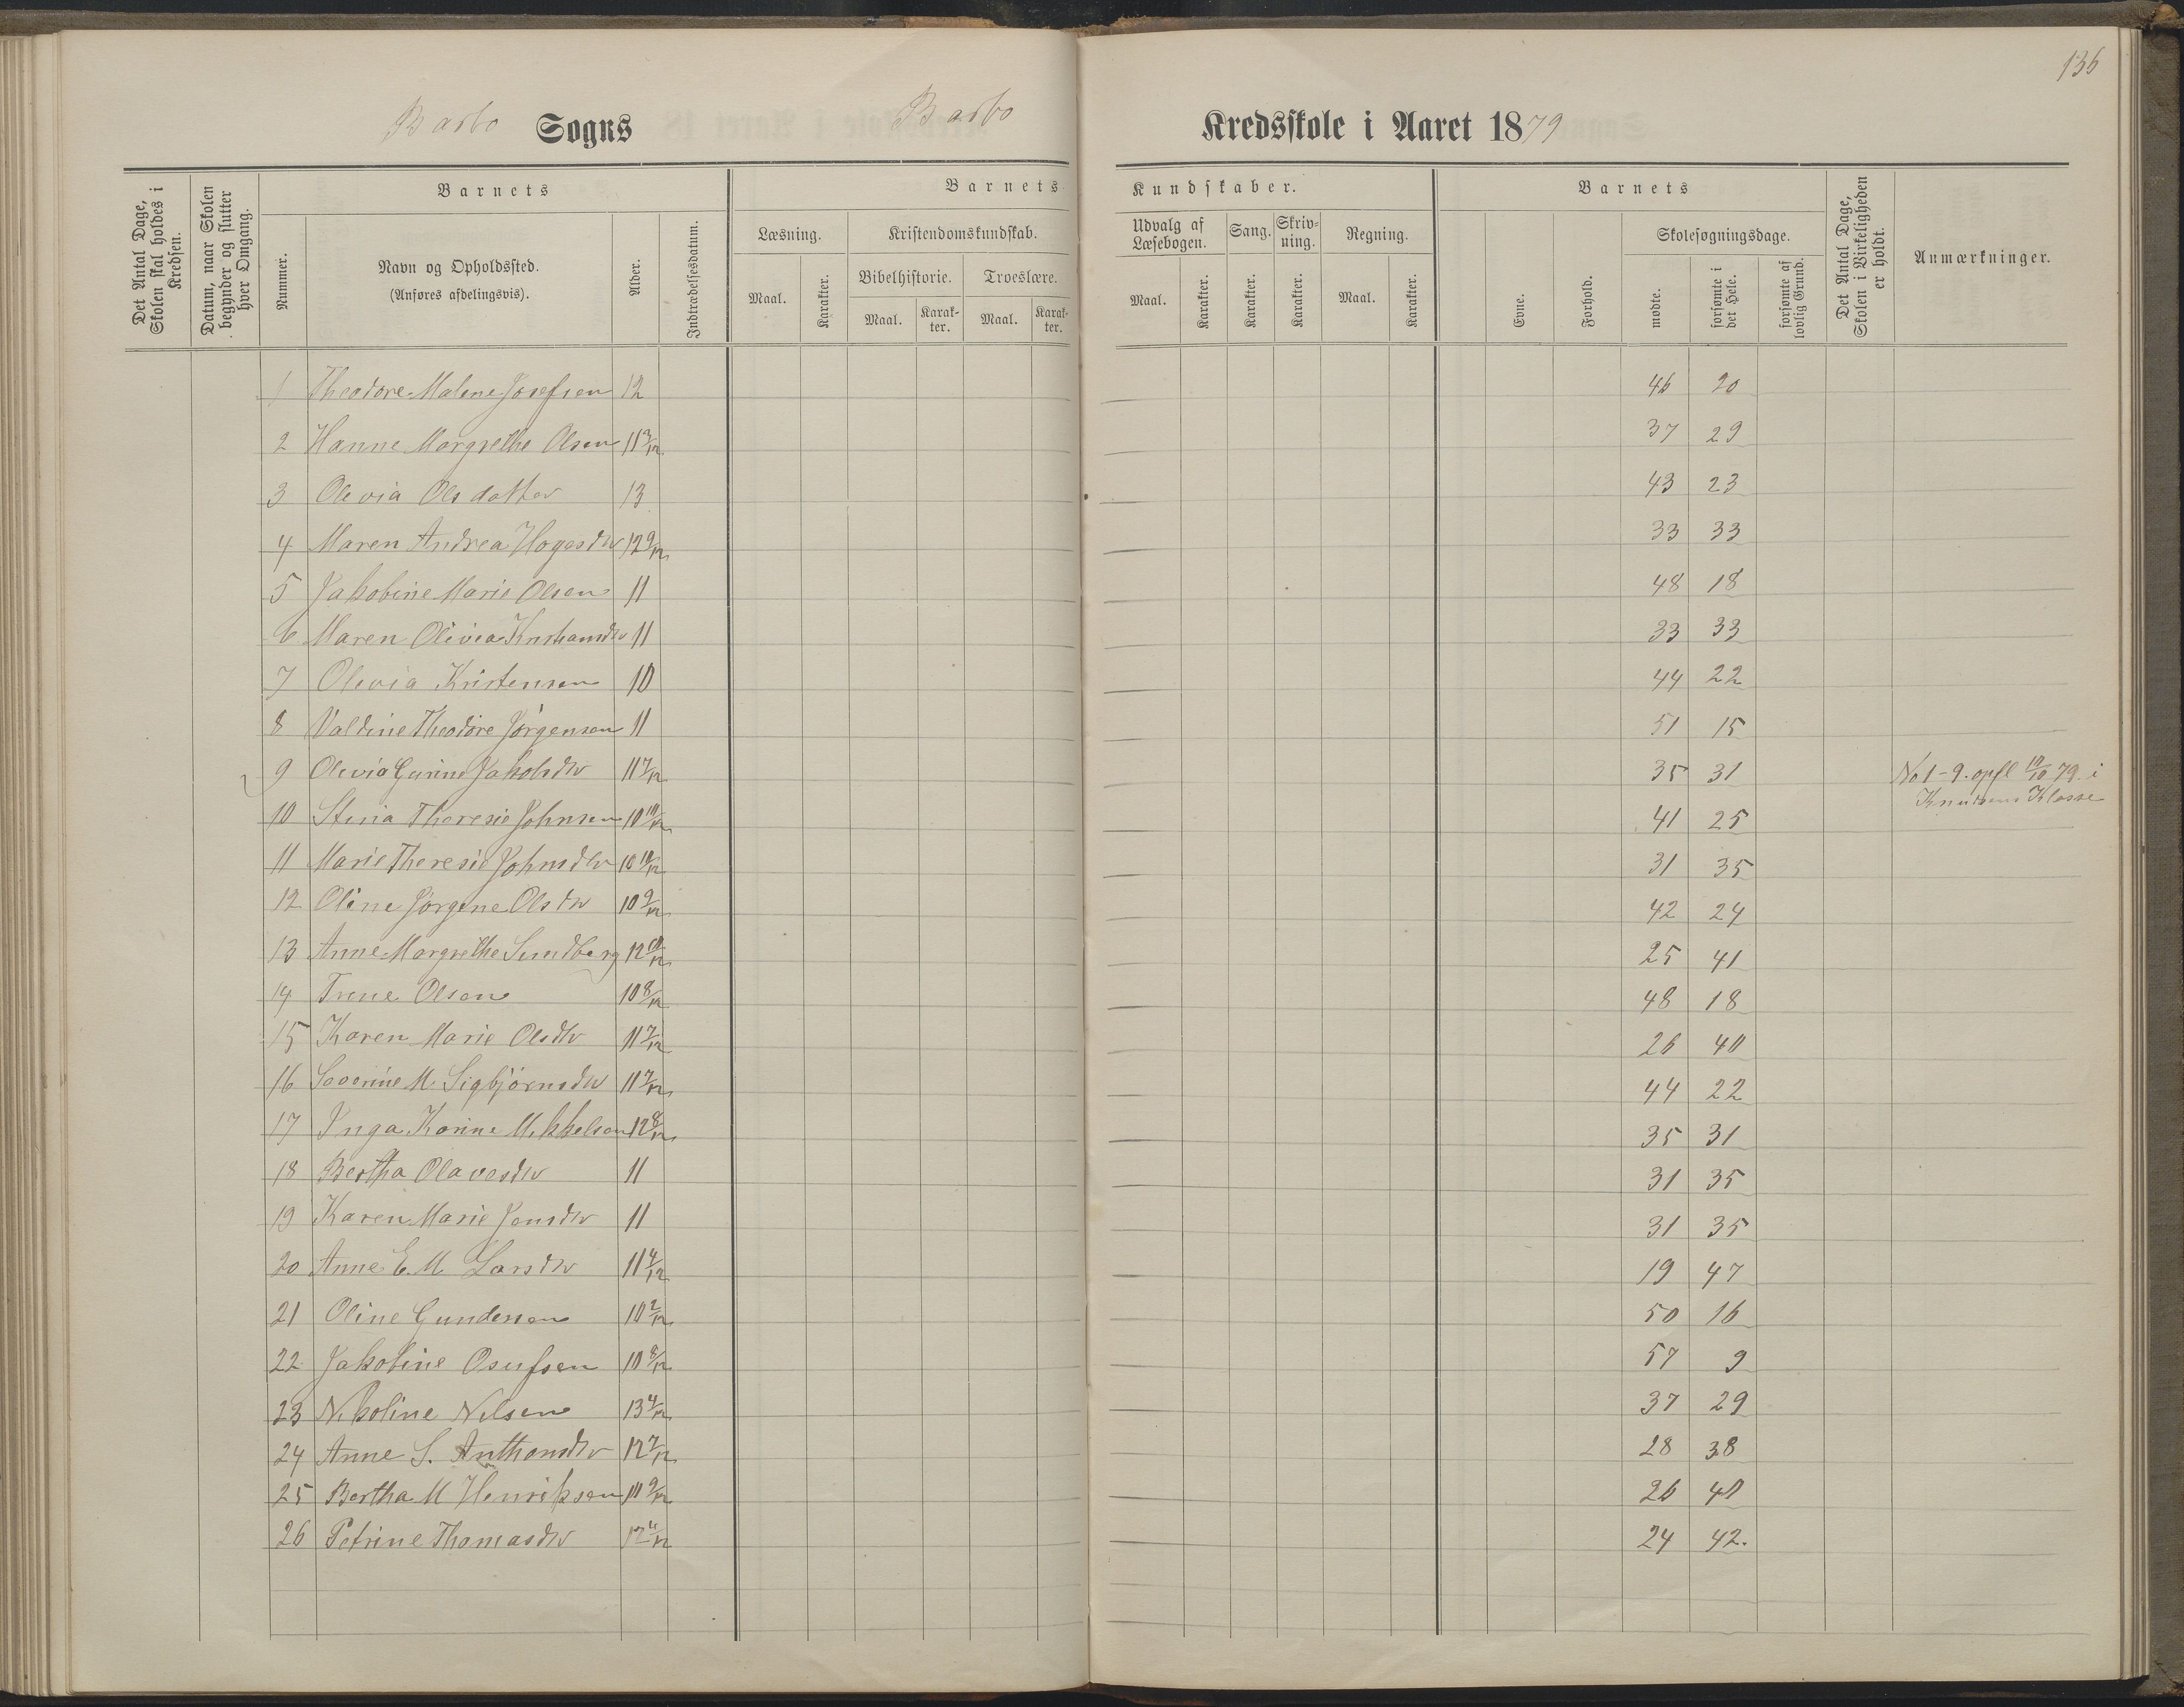 136
Barbo Sogns Barbo Kredsskole i Aaret 1879
Det Antal Dage, Skolen skal holdes i Kredsen.
Datum, naar Skolen begynder og slutter hver Omgang.
Barnets
Nummer.
Navn og Opholdssted.
(Anføres afdelingsvis).
Alder.
Indtrædelsesdatum.
Barnets Kundskaber.
Læsning.
Maal.
Karakter.
Kristendomskundskab.
Bibelhistorie.
Maal.
Karak-
ter.
Troeslære.
Maal.
Karak-
ter.
Udvalg af
Læsebogen.
Maal.
Karakter.
Sang.
Karakter.
Skriv-
ning.
Karakter.
Regning.
Maal.
Karakter.
Barnets
Evne.
Forhold.
Skolesøgningsdage.
mødte.
forsømte i det Hele.
forsømte af lovlig Grund.
Det Antal Dage, Skolen i Virkeligheden er holdt.
Anmærkninger.
1 Theodore Malene Josefsen 12 46 20
2 Hanne Margrethe Olsen 11 3/12 37 29
3 Olevia Olsdatter 13 43 23
4 Maren Andrea Hogesdtr 12 9/12 33 33
5 Jakobine Marie Olsen 11 48 18
6 Maren Olivia Kristiansdtr 11 33 33
7 Olevia Kristensen 10 44 22
8 Valdine Theodore Jørgensen 11 51 15
9 Olevia Gurine Jakobsdtr 11 7/12 35 31 No 1-9. opfl 10/10 79 i
Knudsens Klasse
10 Stina Theresie Johnsen 10 10/12 41 25
11 Marie Theresie Johnsdtr 10 10/12 31 35
12 Oline Jørgine Olsdtr 10 9/12 42 24
13 Anne Margrethe Sundberg 12 10/12 25 41
14 Trene Olsen 10 8/12 48 18
15 Karen Marie Olsdtr 11 7/12 26 40
16 Severine M. Sigbjørnsdtr 11 7/12 44 22
17 Inga Karine Mikkelsen 12 8/12 35 31
18 Bertha Olavesdtr 11 31 35
19 Karen Marie Jensdtr 11 31 35
20 Anne E. M Larsdtr 11 4/12 19 47
21 Oline Gundersen 10 2/12 50 16
22 Jakobine Osufsen 10 8/12 57 9
23 Nikoline Nilsen 13 4/12 37 29
24 Anne S. Anthonsdtr 12 7/12 28 38
25 Bertha M Henriksen 10 9/12 26 40
26 Petrine Thomasdtr 12 4/12 24 42.